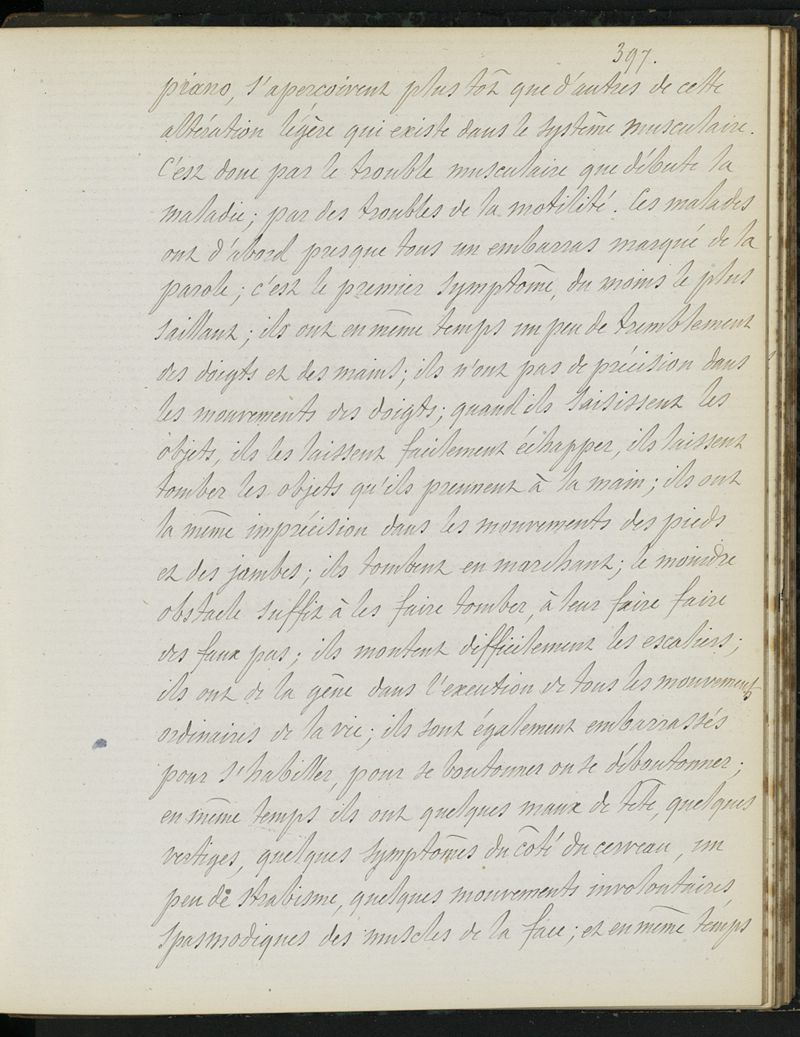 397.
piano, s'aperçoivent plus tôt que d'autres de cette
altération légère qui existe dans le système musculaire.
C'est donc par le trouble musculaire que débute la
maladie; par des troubles de la motilité. Ces malades
ont d'abord presque tous un embarras marqué de la
parole; c'est le premier symptôme, du moins le plus
saillant; ils ont en même temps un peu de tremblement
des doigts et des mains; ils n'ont pas de précision dans
les mouvements des doigts; quand ils saisissent les
objets, ils les laissent facilement échapper, ils laissent
tomber les objets qu'ils prennent à la main; ils ont
la même imprécision dans les mouvements des pieds
et des jambes; ils tombent en marchant; le moindre
obstacle suffit à les faire tomber, à leur faire faire
des faux pas; ils montent difficilement les escaliers;
ils ont de la gêne dans l'exécution de tous les mouvements
ordinaires de la vie; ils sont également embarrassés
pour s'habiller, pour se boutonner ou se déboutonner;
en même temps ils ont quelques maux de tête, quelques
vertiges, quelques symptômes du côté du cerveau, un
peu de strabisme, quelques mouvements involontaires,
spasmodiques des muscles de la face; et en même temps